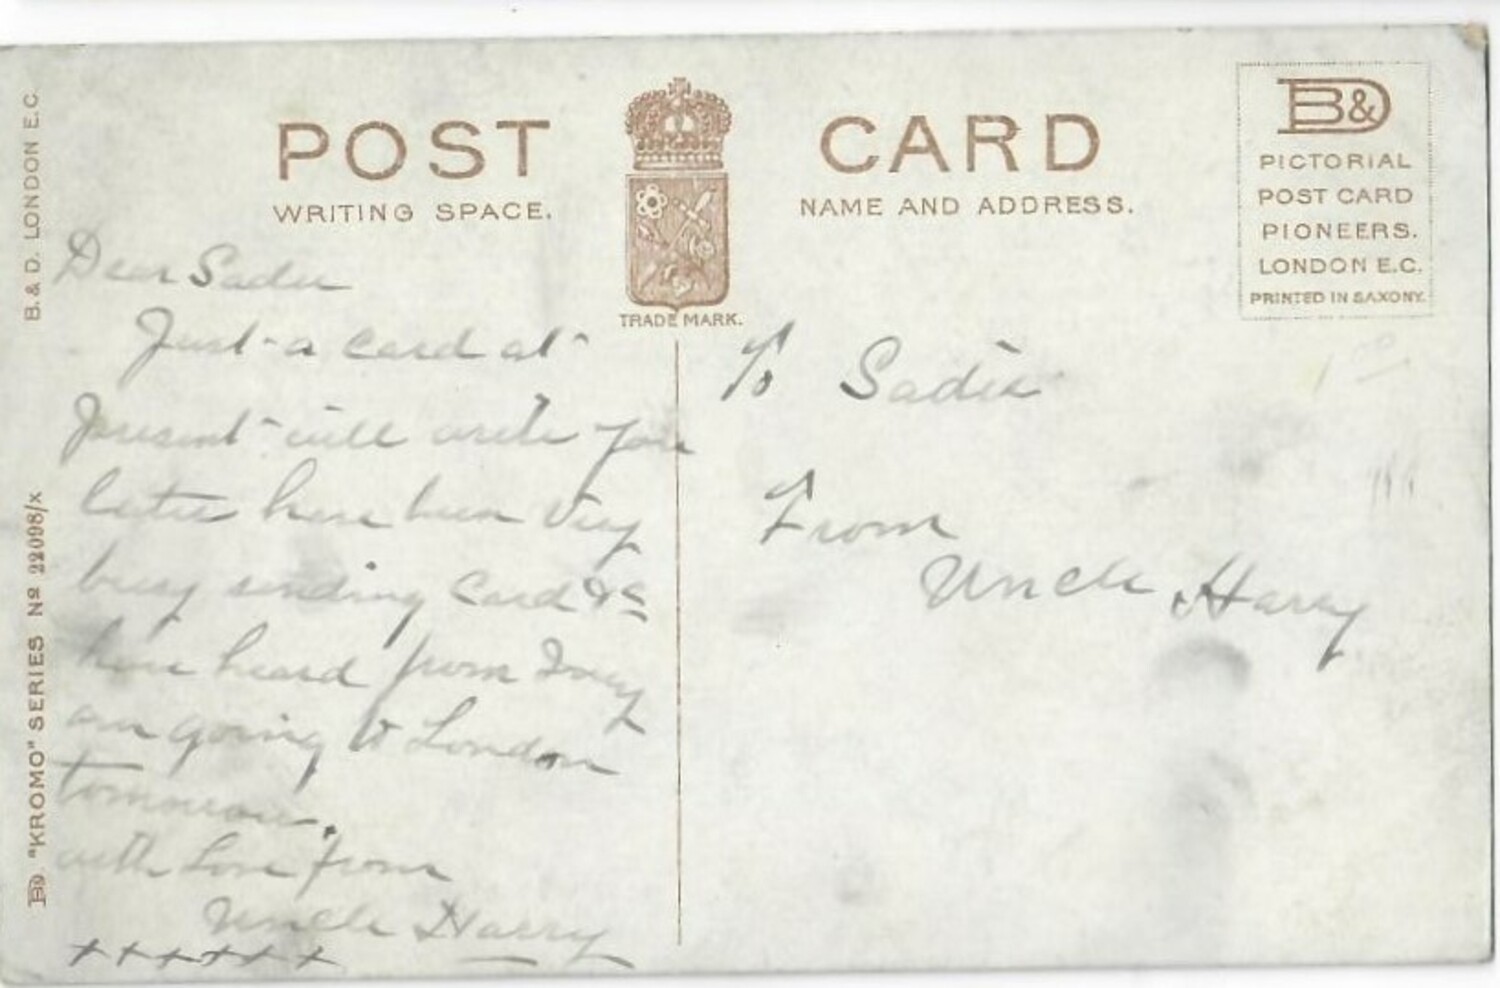 B. & D. LONDON E.C.
BD "KROMO" SERIES No 22098/x
POST CARD
WRITING SPACE.
NAME AND ADDRESS.
TRADE MARK.
B&D
PICTORIAL
POST CARD
PIONEERS.
LONDON E.C.
PRINTED IN SAXONY.
Dear Sadie
Just a card at
present will write you
later have been very
busy sending Card &c
have heard from
am going to London
tomorrow.
with Love from
Uncle Harry
++++++
To Sadie
From
Uncle Harry